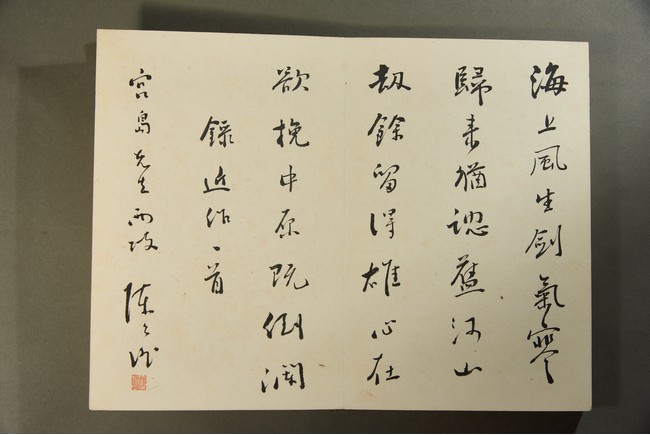 海上風生劍氣寒
歸来猶認舊河山
劫餘留得雄心在
欲挽中原既倒瀾
錄近作一首
宮島先生兩政 陳